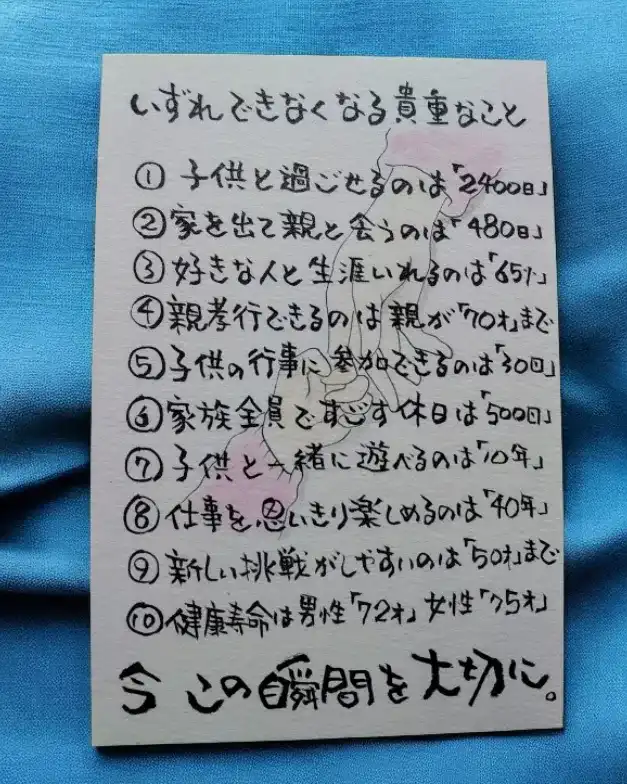 いずれできなくなる貴重なこと
① 子供と過ごせるのは「2400日」
② 家を出て親と会うのは「480日」
③ 好きな人と生涯いれるのは「65%」
④ 親孝行できるのは親が「70才」まで
⑤ 子供の行事に参加できるのは「30回」
⑥ 家族全員ですごす休日は「500回」
⑦ 子供と一緒に遊べるのは「10年」
⑧ 仕事を思いきり楽しめるのは「40年」
⑨ 新しい挑戦がしやすいのは「50才」まで
⑩ 健康寿命は男性「72才」女性「75才」
今この瞬間を大切に。